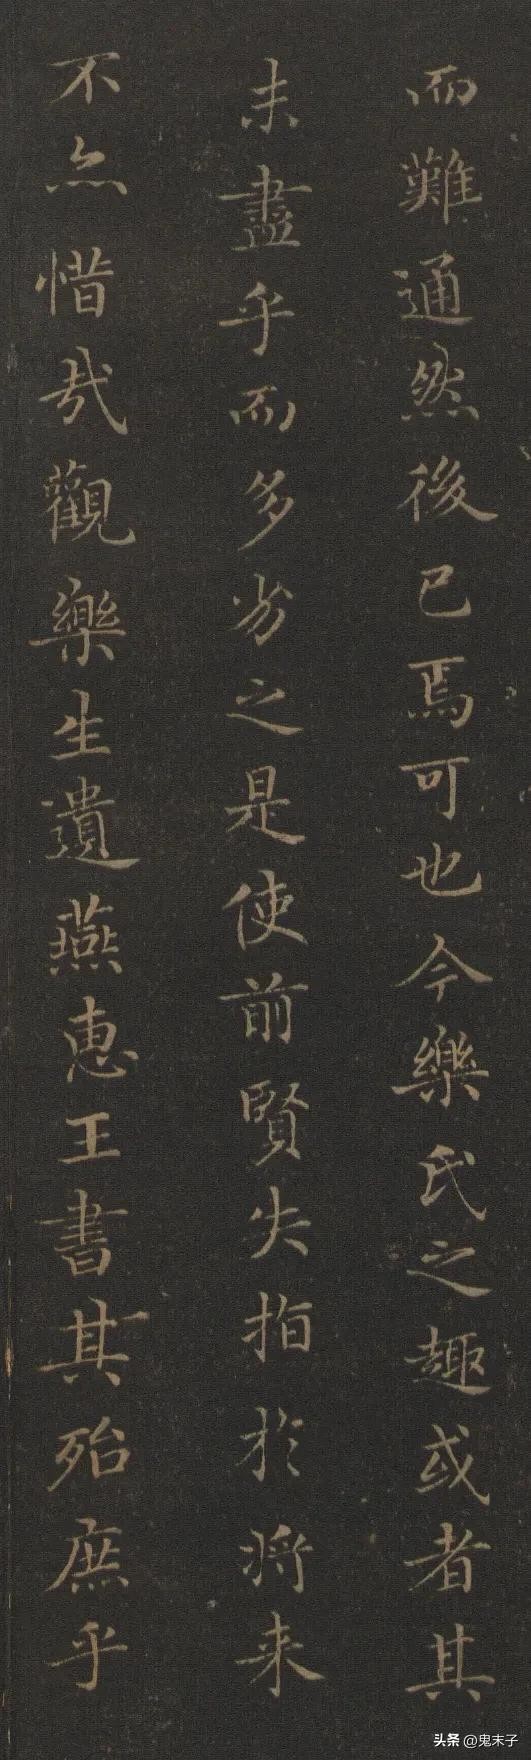 而難通然後已焉可也今樂氏之趣或者其
未盡乎而多劣之是使前賢失指於将来
不亦惜哉觀樂生遺燕惠王書其殆庶乎
头条 @鬼末子